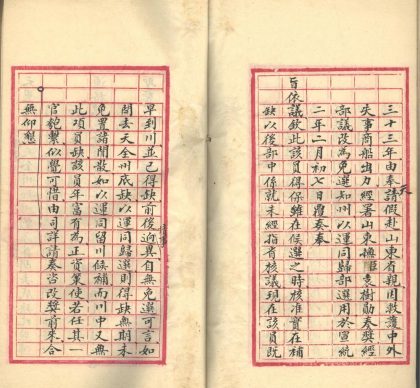 三十三年由奉天請假赴山東省親因救護中外
失事商船出力經署山東撫臣袁樹勛奏奬經
部議改為免選知州以運同歸部選用於宣統
二年二月初七日覆奏奉
旨依議欽此該員得保雖在候選之時核准實在補
缺以後部中係就未經指省核議現在該員既
早到川並已得缺前後迥異自無免選可言如
開去天全州底缺以運同歸選則得缺無期未
免置諸閒散如以運同留川候補而川中又無
此項員缺該員年富有為正資策使若任其一
官匏繫似覺可惜由司詳請奏咨改奬前來合
無仰懇